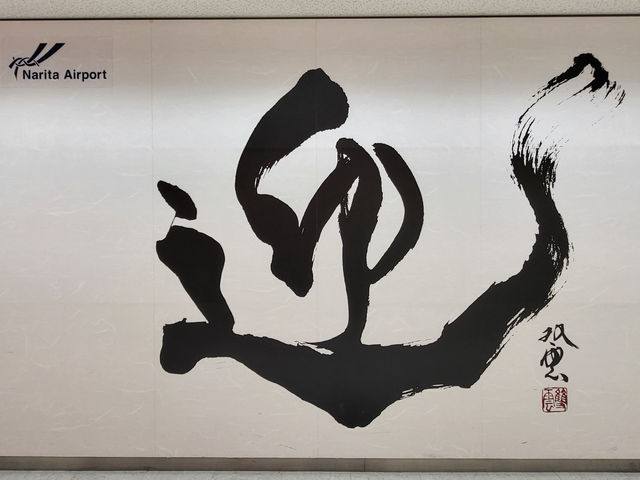 Narita Airport
迎